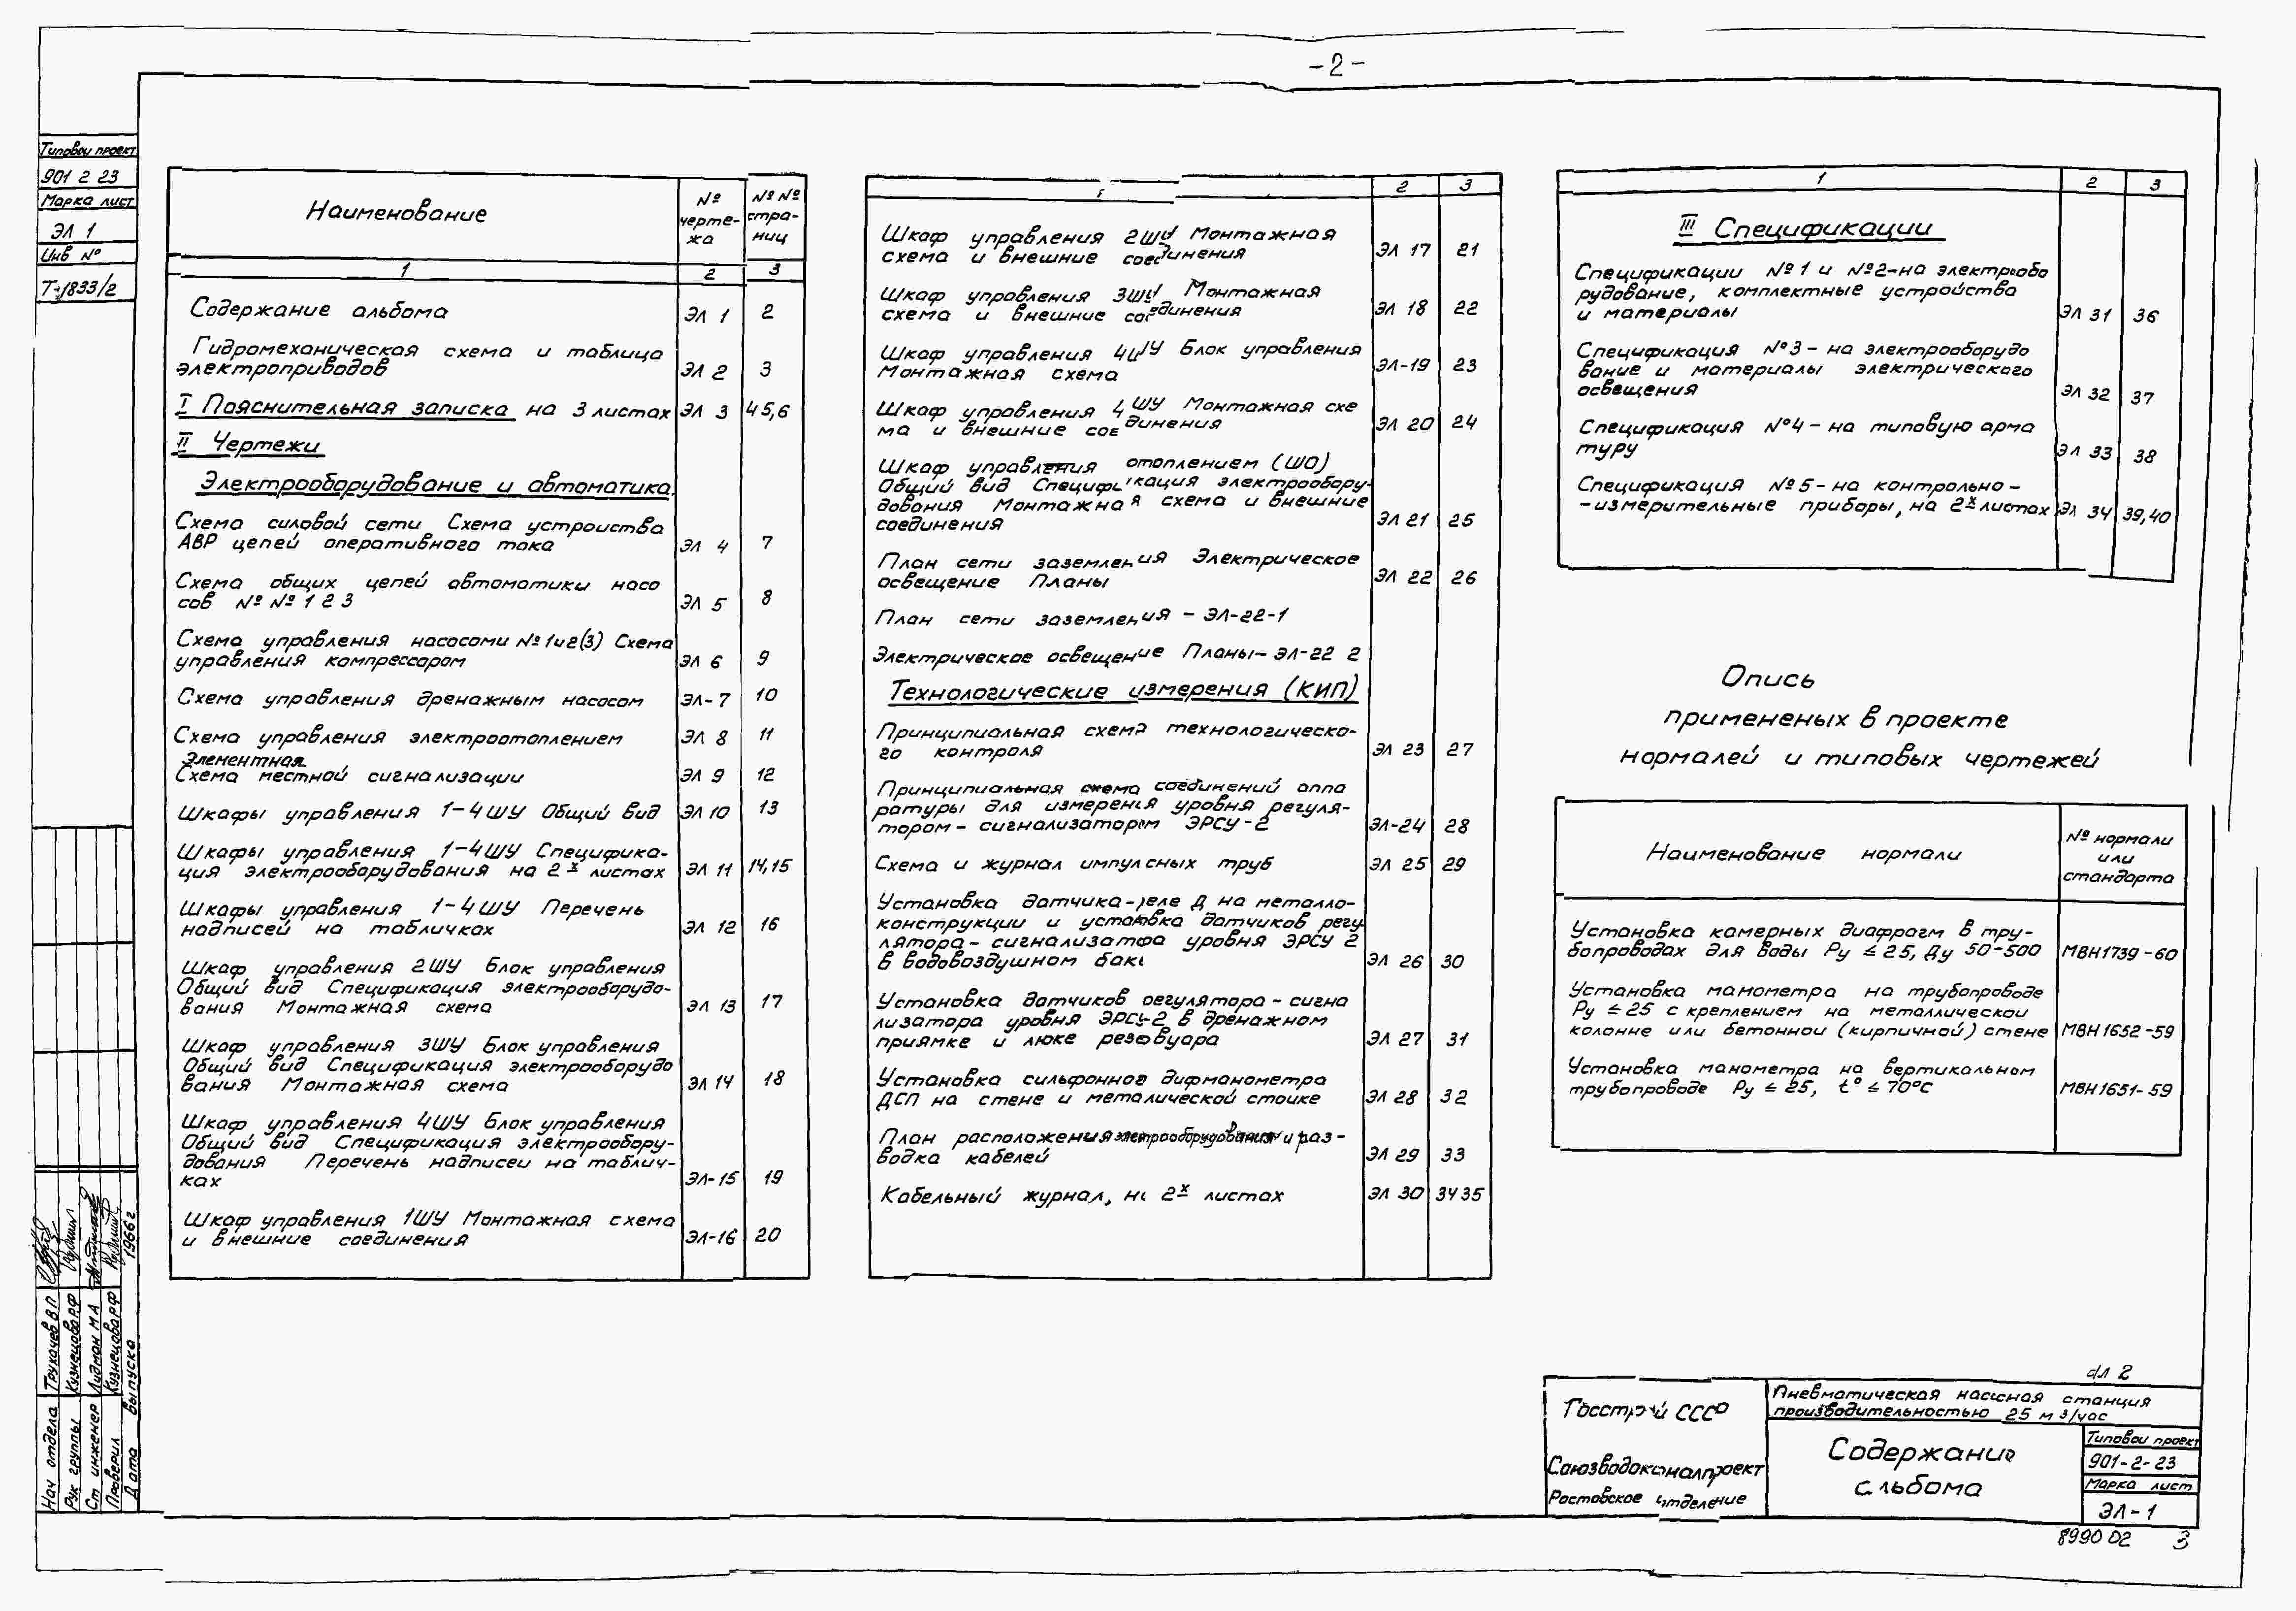 -2-
Типовой проект
901 2 23
Марка лист
ЭЛ 1
Инв №
Т-1833/2
Наименование
№ чертежа
№№ страниц
1 2 3
Содержание альбома ЭЛ 1 2
Гидромеханическая схема и таблица
электроприводов ЭЛ 2 3
I Пояснительная записка на 3 листах ЭЛ 3 4 5,6
II Чертежи
Электрооборудование и автоматика.
Схема силовой сети Схема устроиства
АВР цепей оперативного тока ЭЛ 4 7
Схема общих цепей автоматики насо
сов №№ 1 2 3 ЭЛ 5 8
Схема управления насосами № 1и2(3) Схема
управления компрессором ЭЛ 6 9
Схема управления дренажным насосом ЭЛ-7 10
Схема управления электроотоплением ЭЛ 8 11
Элементная
Схема местной сигнализации ЭЛ 9 12
Шкафы управления 1-4 ШУ Общий вид ЭЛ 10 13
Шкафы управления 1-4 ШУ Специфика-
ция электрооборудования на 2х листах ЭЛ 11 14,15
Шкафы управления 1-4 ШУ Перечень
надписей на табличках ЭЛ 12 16
Шкаф управления 2ШУ Блок управления
Общий вид Спецификация электрооборудо-
вания Монтажная схема ЭЛ 13 17
Шкаф управления 3ШУ Блок управления
Общий вид Спецификация электрооборудо
вания Монтажная схема ЭЛ 14 18
Шкаф управления 4ШУ Блок управления
Общий вид Спецификация электрообору-
дования Перечень надписеи на таблич-
ках ЭЛ-15 19
Шкаф управления 1ШУ Монтажная схема
и внешние соединения ЭЛ-16 20
2 3
Шкаф управления 2ШУ Монтажная
схема и внешние соединения ЭЛ 17 21
Шкаф управления 3ШУ Монтажная
схема и внешние соединения ЭЛ 18 22
Шкаф управления 4ШУ Блок управления
Монтажная схема ЭЛ-19 23
Шкаф управления 4 ШУ Монтажная схе
ма и внешние соединения ЭЛ 20 24
Шкаф управления отоплением (ШО)
Общий вид Спецификация электрообору-
дования Монтажная схема и внешние
соединения ЭЛ 21 25
План сети заземления Электрическое
освещение Планы ЭЛ 22 26
План сети заземления - ЭЛ-22-1
Электрическое освещение Планы- ЭЛ-22 2
Технологические измерения (КИП)
Принципиальная схема технологическо-
го контроля ЭЛ 23 27
Принципиальная схема соединений аппа
ратуры для измерения уровня регуля-
тором-сигнализатором ЭРСУ-2 ЭЛ-24 28
Схема и журнал импулсных труб ЭЛ 25 29
Установка датчика-реле Д на металло-
конструкции и установка датчиков регу
лятора-сигнализатора уровня ЭРСУ 2
в водовоздушном баке ЭЛ 26 30
Установка датчиков регулятора-сигна
лизатора уровня ЭРСУ-2 в дренажном
приямке и люке резервуара ЭЛ 27 31
Установка сильфонного дифманометра
ДСП на стене и металической стоике ЭЛ 28 32
План расположения электрооборудования и раз-
водка кабелей ЭЛ 29 33
Кабельный журнал, на 2х листах ЭЛ 30 34 35
1 2 3
III Спецификации
Спецификации №1 и №2-на электрообо
рудование, комплектные устройства
и материалы ЭЛ 31 36
Спецификация №3-на электрооборудо
вание и материалы электрического
освещения ЭЛ 32 37
Спецификация №4-на типовую арма
туру ЭЛ 33 38
Спецификация №5-на контрольно-
-измерительные приборы, на 2х листах ЭЛ 34 39,40
Опись
примененых в проекте
нормалей и типовых чертежей
Наименование нормали
№ нормали
или
стандарта
Установка камерных диафрагм в тру-
бопроводах для воды Ру ≤ 25, Ду 50-500 МВН1739-60
Установка манометра на трубопроводе
Ру ≤ 25 с креплением на металлической
колонне или бетонной (кирпичной) стене МВН1652-59
Установка манометра на вертикальном
трубопроводе Ру ≤ 25, t° ≤ 70°С МВН1651-59
Нач отдела Трухачев В П
Рук группы Кузнецова РФ
Ст инженер Лидман М А
Проверил Кузнецова РФ
Дата выпуска 1966г
ал 2
Госстрой СССР
Союзводоканалпроект
Ростовское отделение
Пневматическая насосная станция
производительностью 25 м3/час
Содержание
альбома
Типовои проект
901-2-23
Марка лист
ЭЛ-1
8990 02 3